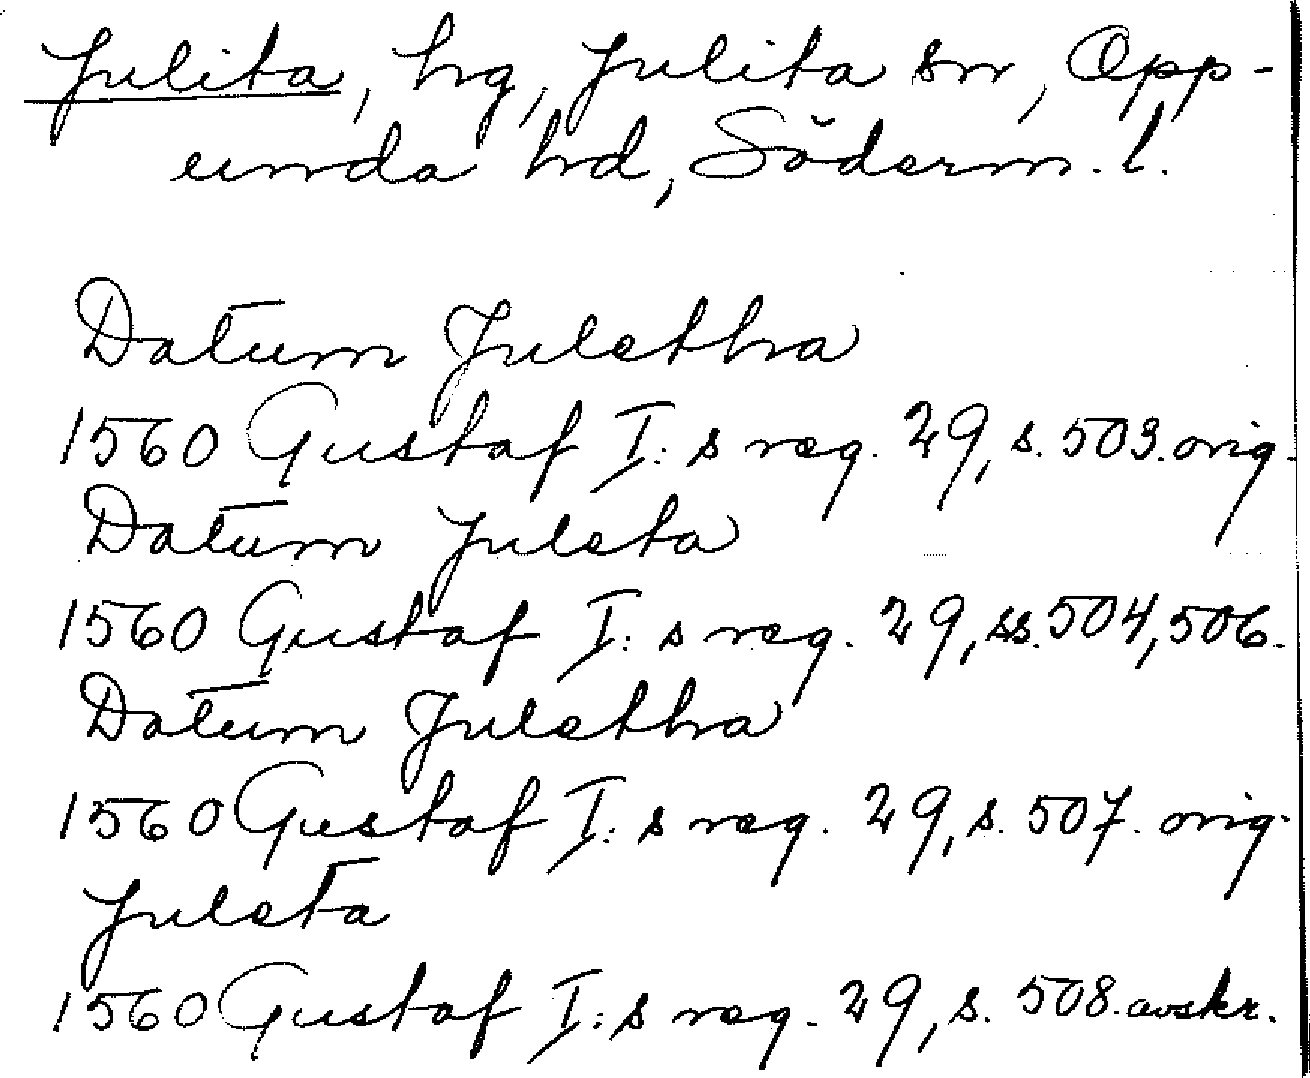 Julita, hg, Julita sn, Opp-
unda hd, Söderm. l.
Datum Julethra
1560 Gustaf I: s reg. 29, s. 503. orig.
Datum Juleta
1560 Gustaf I: s reg. 29, ss. 504, 506.
Datum Julethra
1560 Gustaf I: s reg. 29, s. 507. orig.
Juleta
1560 Gustaf I: s reg. 29, s. 508. avskr.